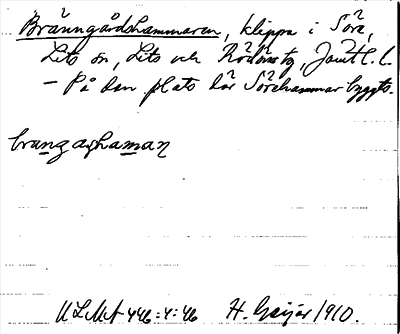 Bränngårdshammaren, klippa i Söre,
Lets sn, Lets och
— På den plats där Sörehammar byggts.
brungaghaman
ULMA 446:4:46 H. Geijer 1910.